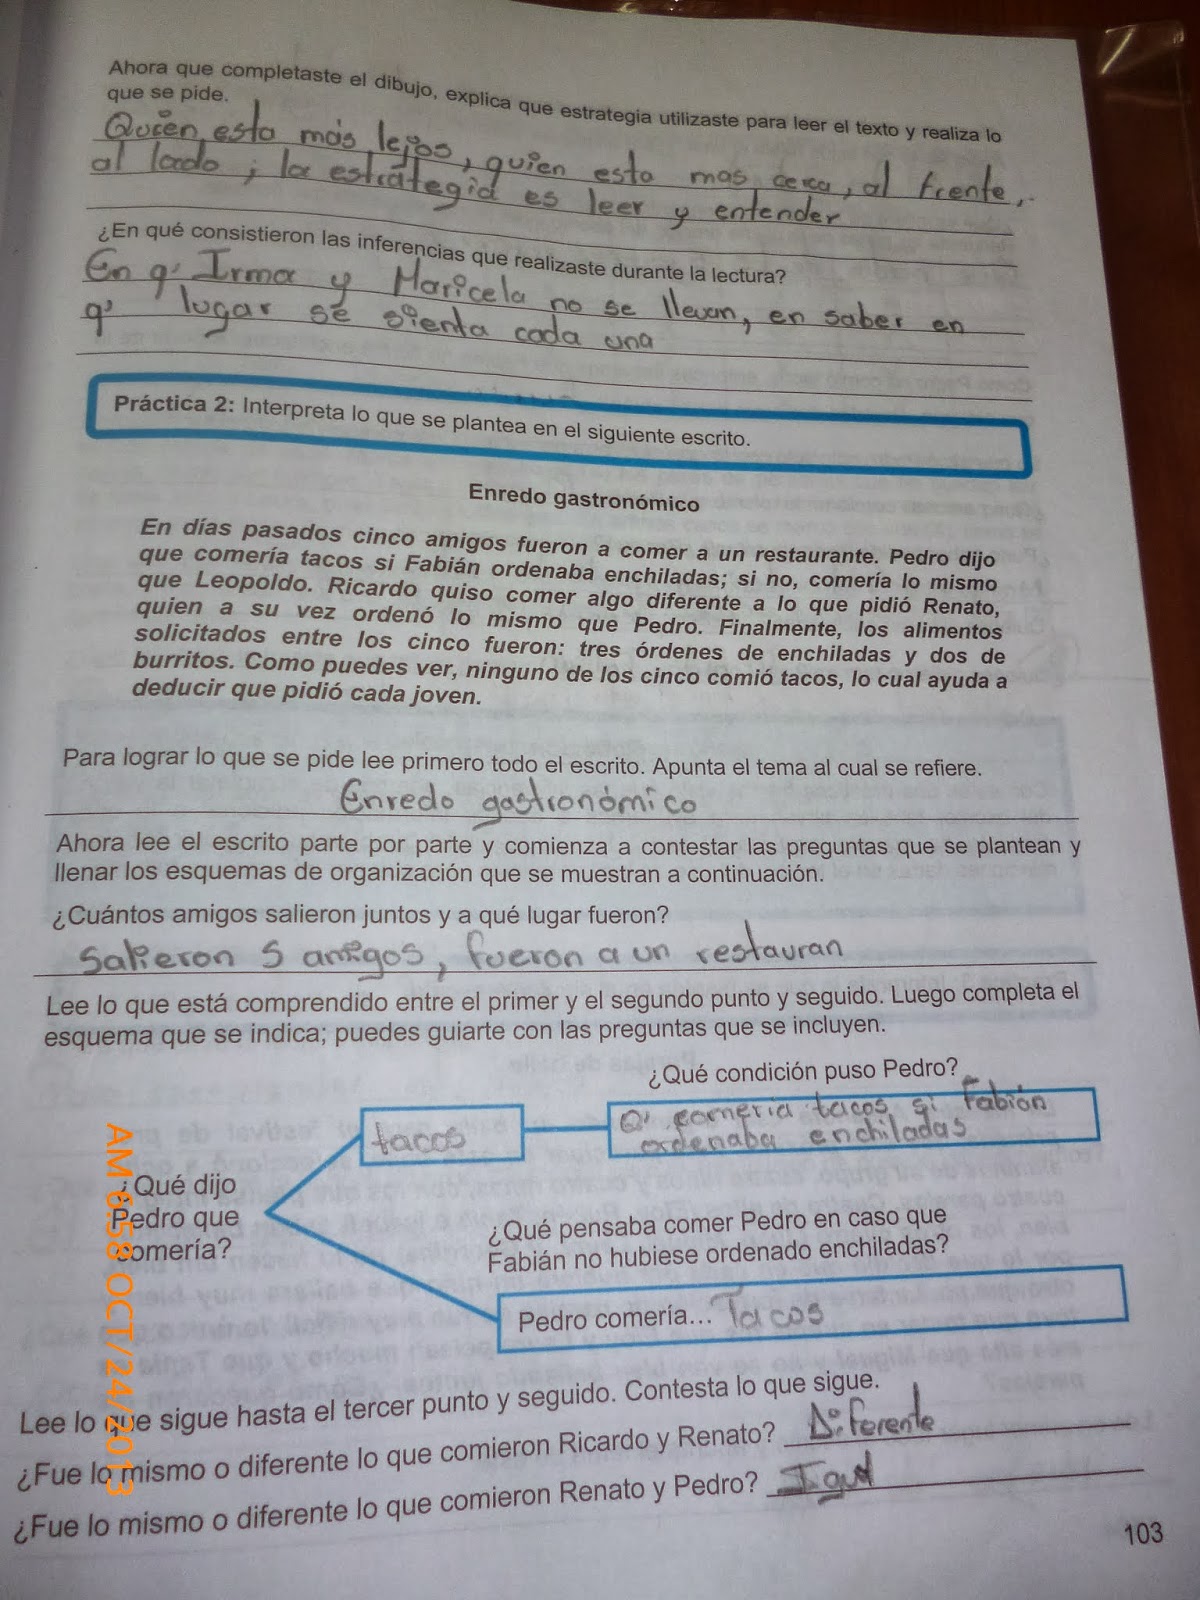 Ahora que completaste el dibujo, explica que estrategia utilizaste para leer el texto y realiza lo
que se pide.
Quien esta más lejos, quien esta mas cerca, al frente,
al lado; la estrategia es leer y entender
¿En qué consistieron las inferencias que realizaste durante la lectura?
En q' Irma y Maricela no se llevan, en saber en
q' lugar se sienta cada una
Práctica 2: Interpreta lo que se plantea en el siguiente escrito.
Enredo gastronómico
En días pasados cinco amigos fueron a comer a un restaurante. Pedro dijo
que comería tacos si Fabián ordenaba enchiladas; si no, comería lo mismo
que Leopoldo. Ricardo quiso comer algo diferente a lo que pidió Renato,
quien a su vez ordenó lo mismo que Pedro. Finalmente, los alimentos
solicitados entre los cinco fueron: tres órdenes de enchiladas y dos de
burritos. Como puedes ver, ninguno de los cinco comió tacos, lo cual ayuda a
deducir que pidió cada joven.
Para lograr lo que se pide lee primero todo el escrito. Apunta el tema al cual se refiere.
Enredo gastronómico
Ahora lee el escrito parte por parte y comienza a contestar las preguntas que se plantean y
llenar los esquemas de organización que se muestran a continuación.
¿Cuántos amigos salieron juntos y a qué lugar fueron?
Salieron 5 amigos, fueron a un restauran
Lee lo que está comprendido entre el primer y el segundo punto y seguido. Luego completa el
esquema que se indica; puedes guiarte con las preguntas que se incluyen.
¿Qué condición puso Pedro?
tacos
Q' comeria tacos si Fabián
ordenaba enchiladas
¿Qué dijo
Pedro que
comería?
¿Qué pensaba comer Pedro en caso que
Fabián no hubiese ordenado enchiladas?
Pedro comería... Tacos
Lee lo que sigue hasta el tercer punto y seguido. Contesta lo que sigue.
¿Fue lo mismo o diferente lo que comieron Ricardo y Renato? Diferente
¿Fue lo mismo o diferente lo que comieron Renato y Pedro? Igual
103
AM 6:58 OCT/24/2013